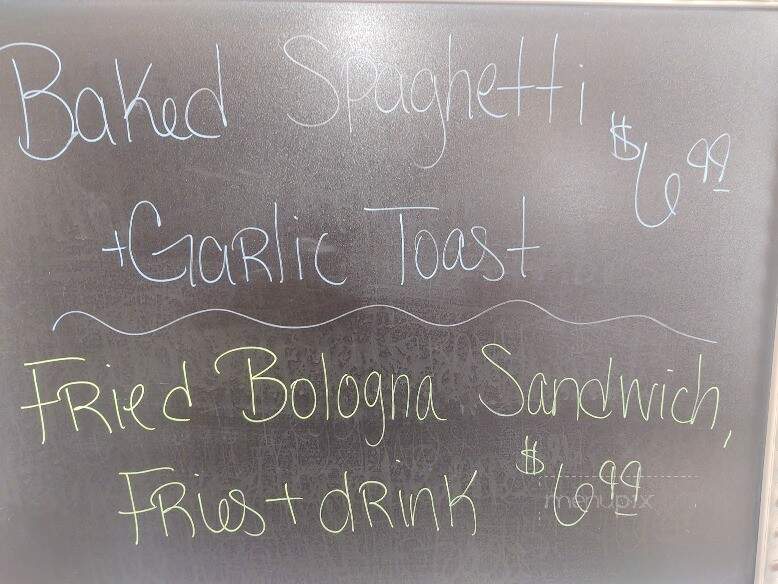 Baked Spaghetti $6.99
+ Garlic Toast
Fried Bologna Sandwich,
Fries + drink $6.99
menupix